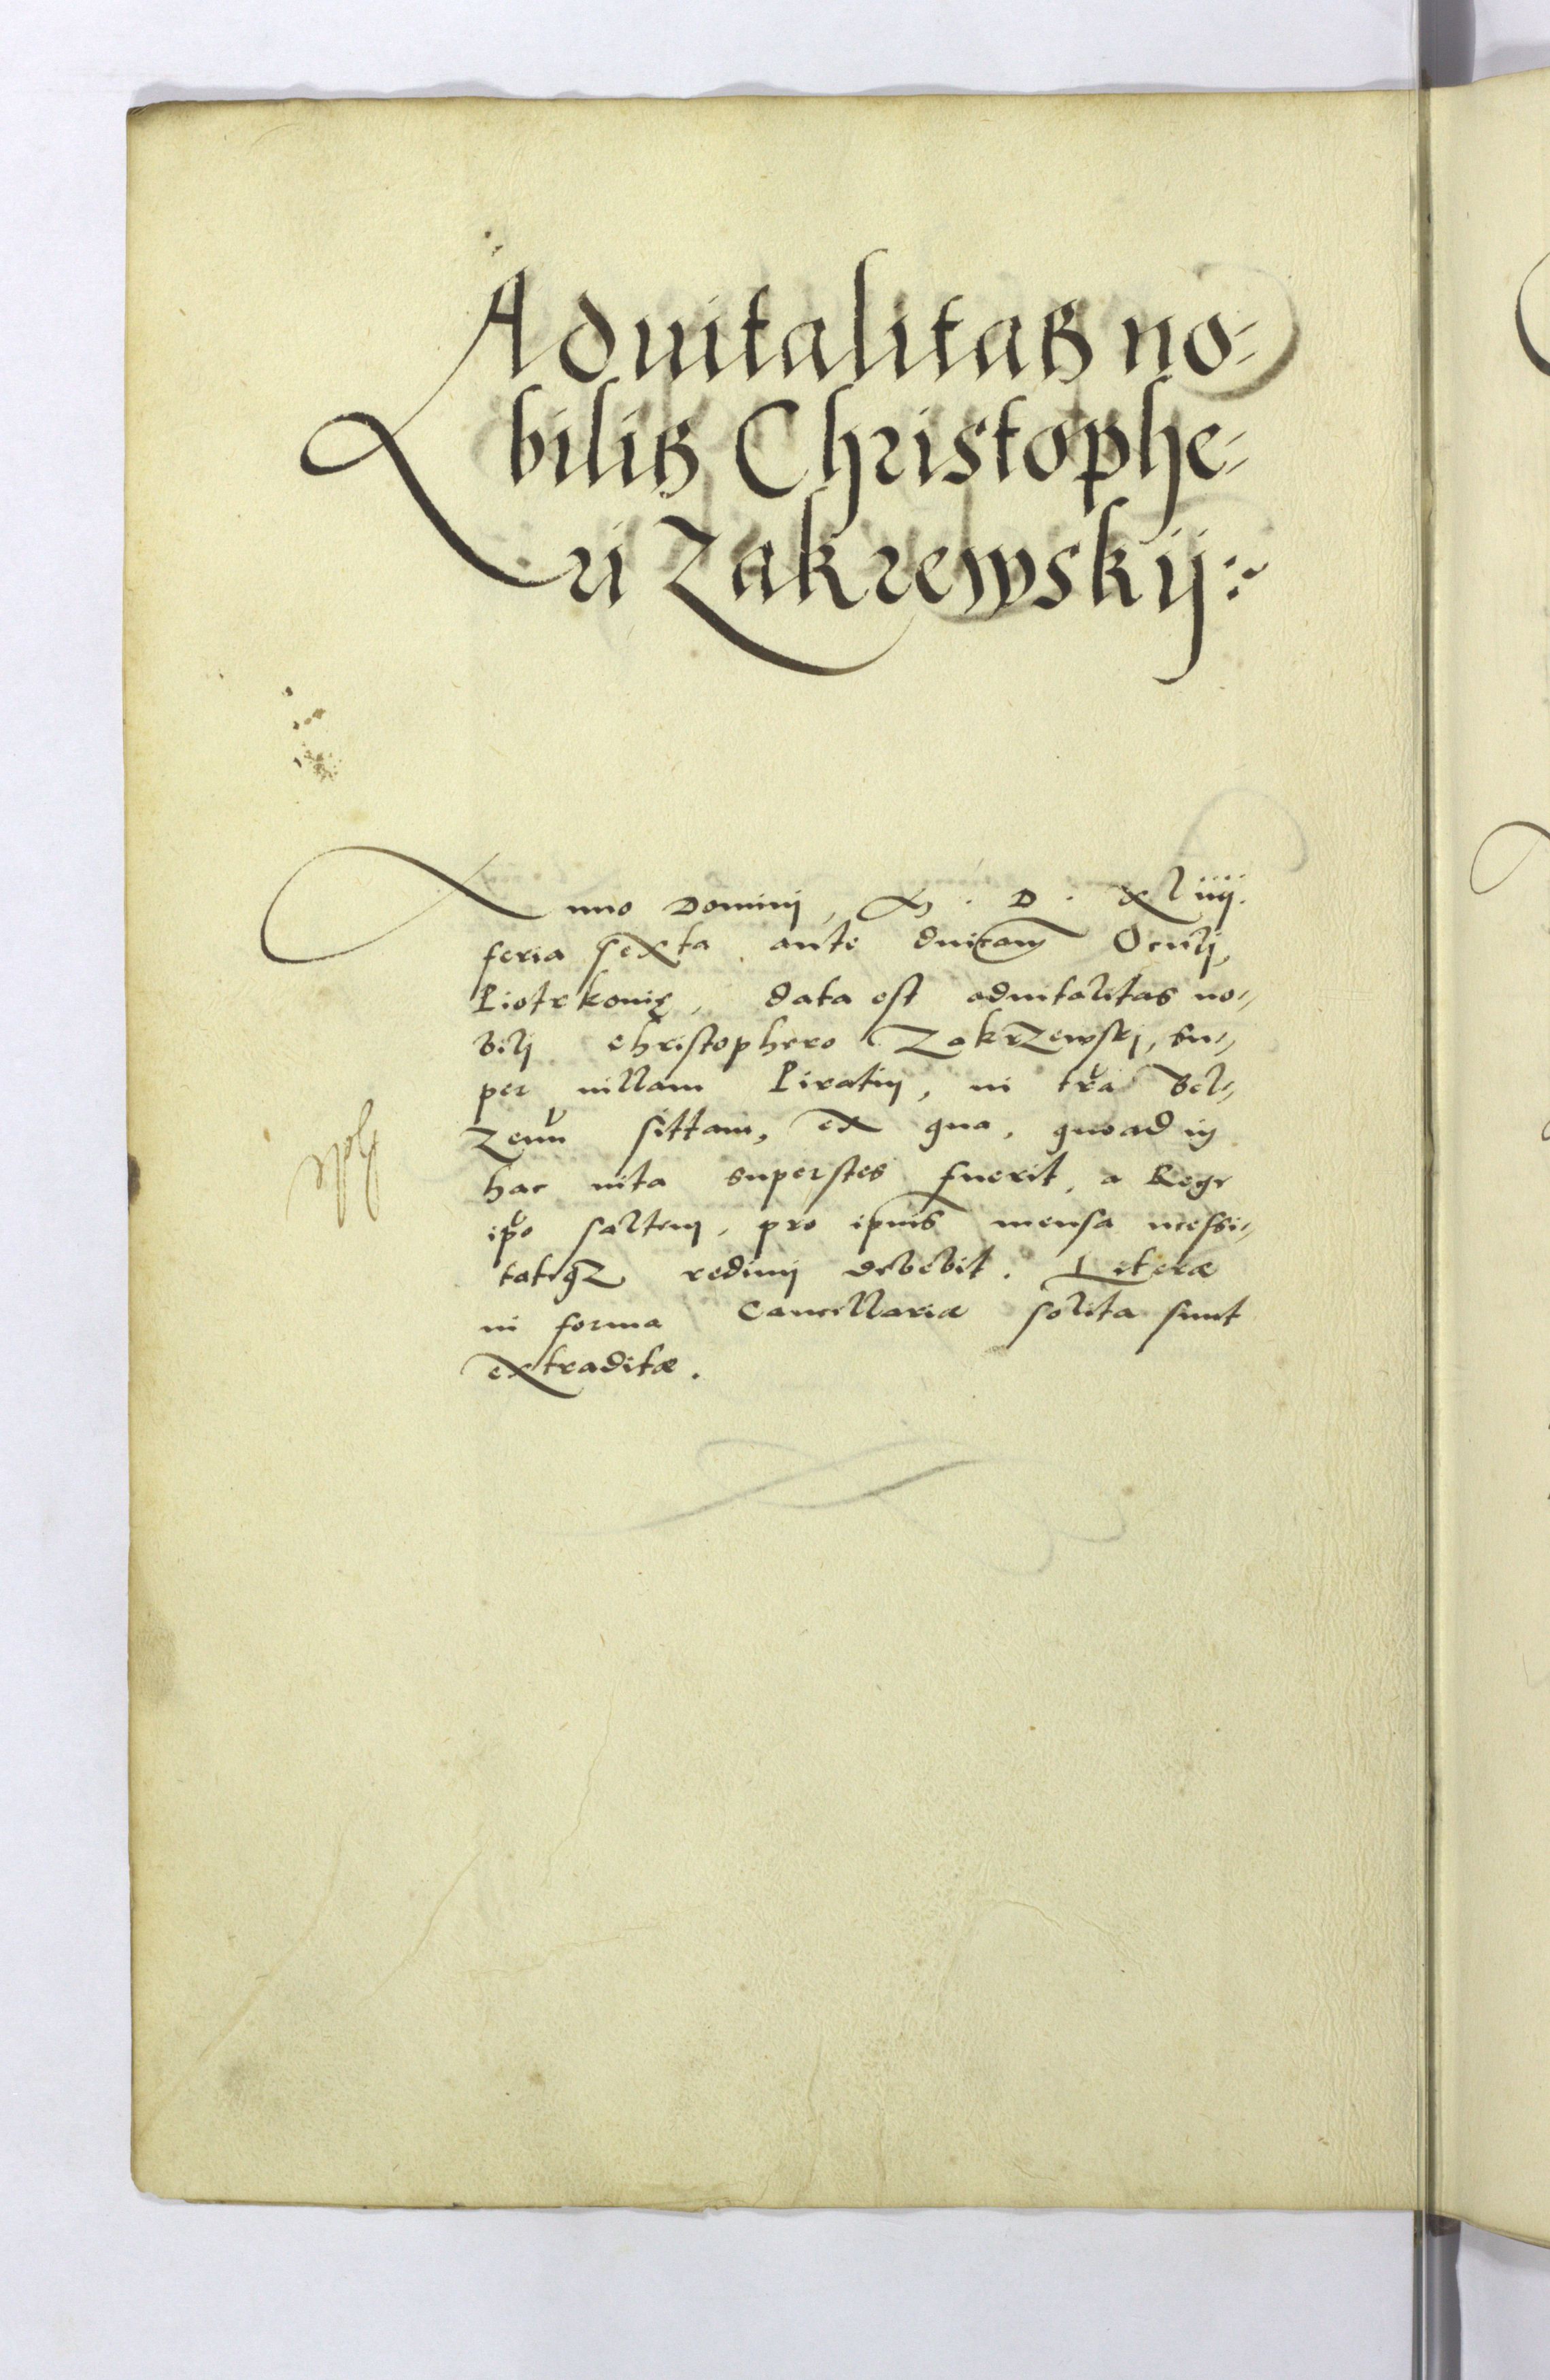 Aduitalitas no-
bilis Christophe-
ri Zakrewskij:~
Anno Domini, M. D. xliiij.
feria sexta ante dnicam Oculj,
Piotrkouiȩ, data est aduitalitas no-
bilj Christophero Zakrzewskj, su-
per uillam Piratin, in tra Bel-
zenn sittam, ex qua, quoad in
hac uita superstes fuerit, a Rege
ipo saltem, pro ipius mensa necessi-
tateqz redimj debebit. Literæ
in forma Cancellariæ solita sunt
extraditæ.